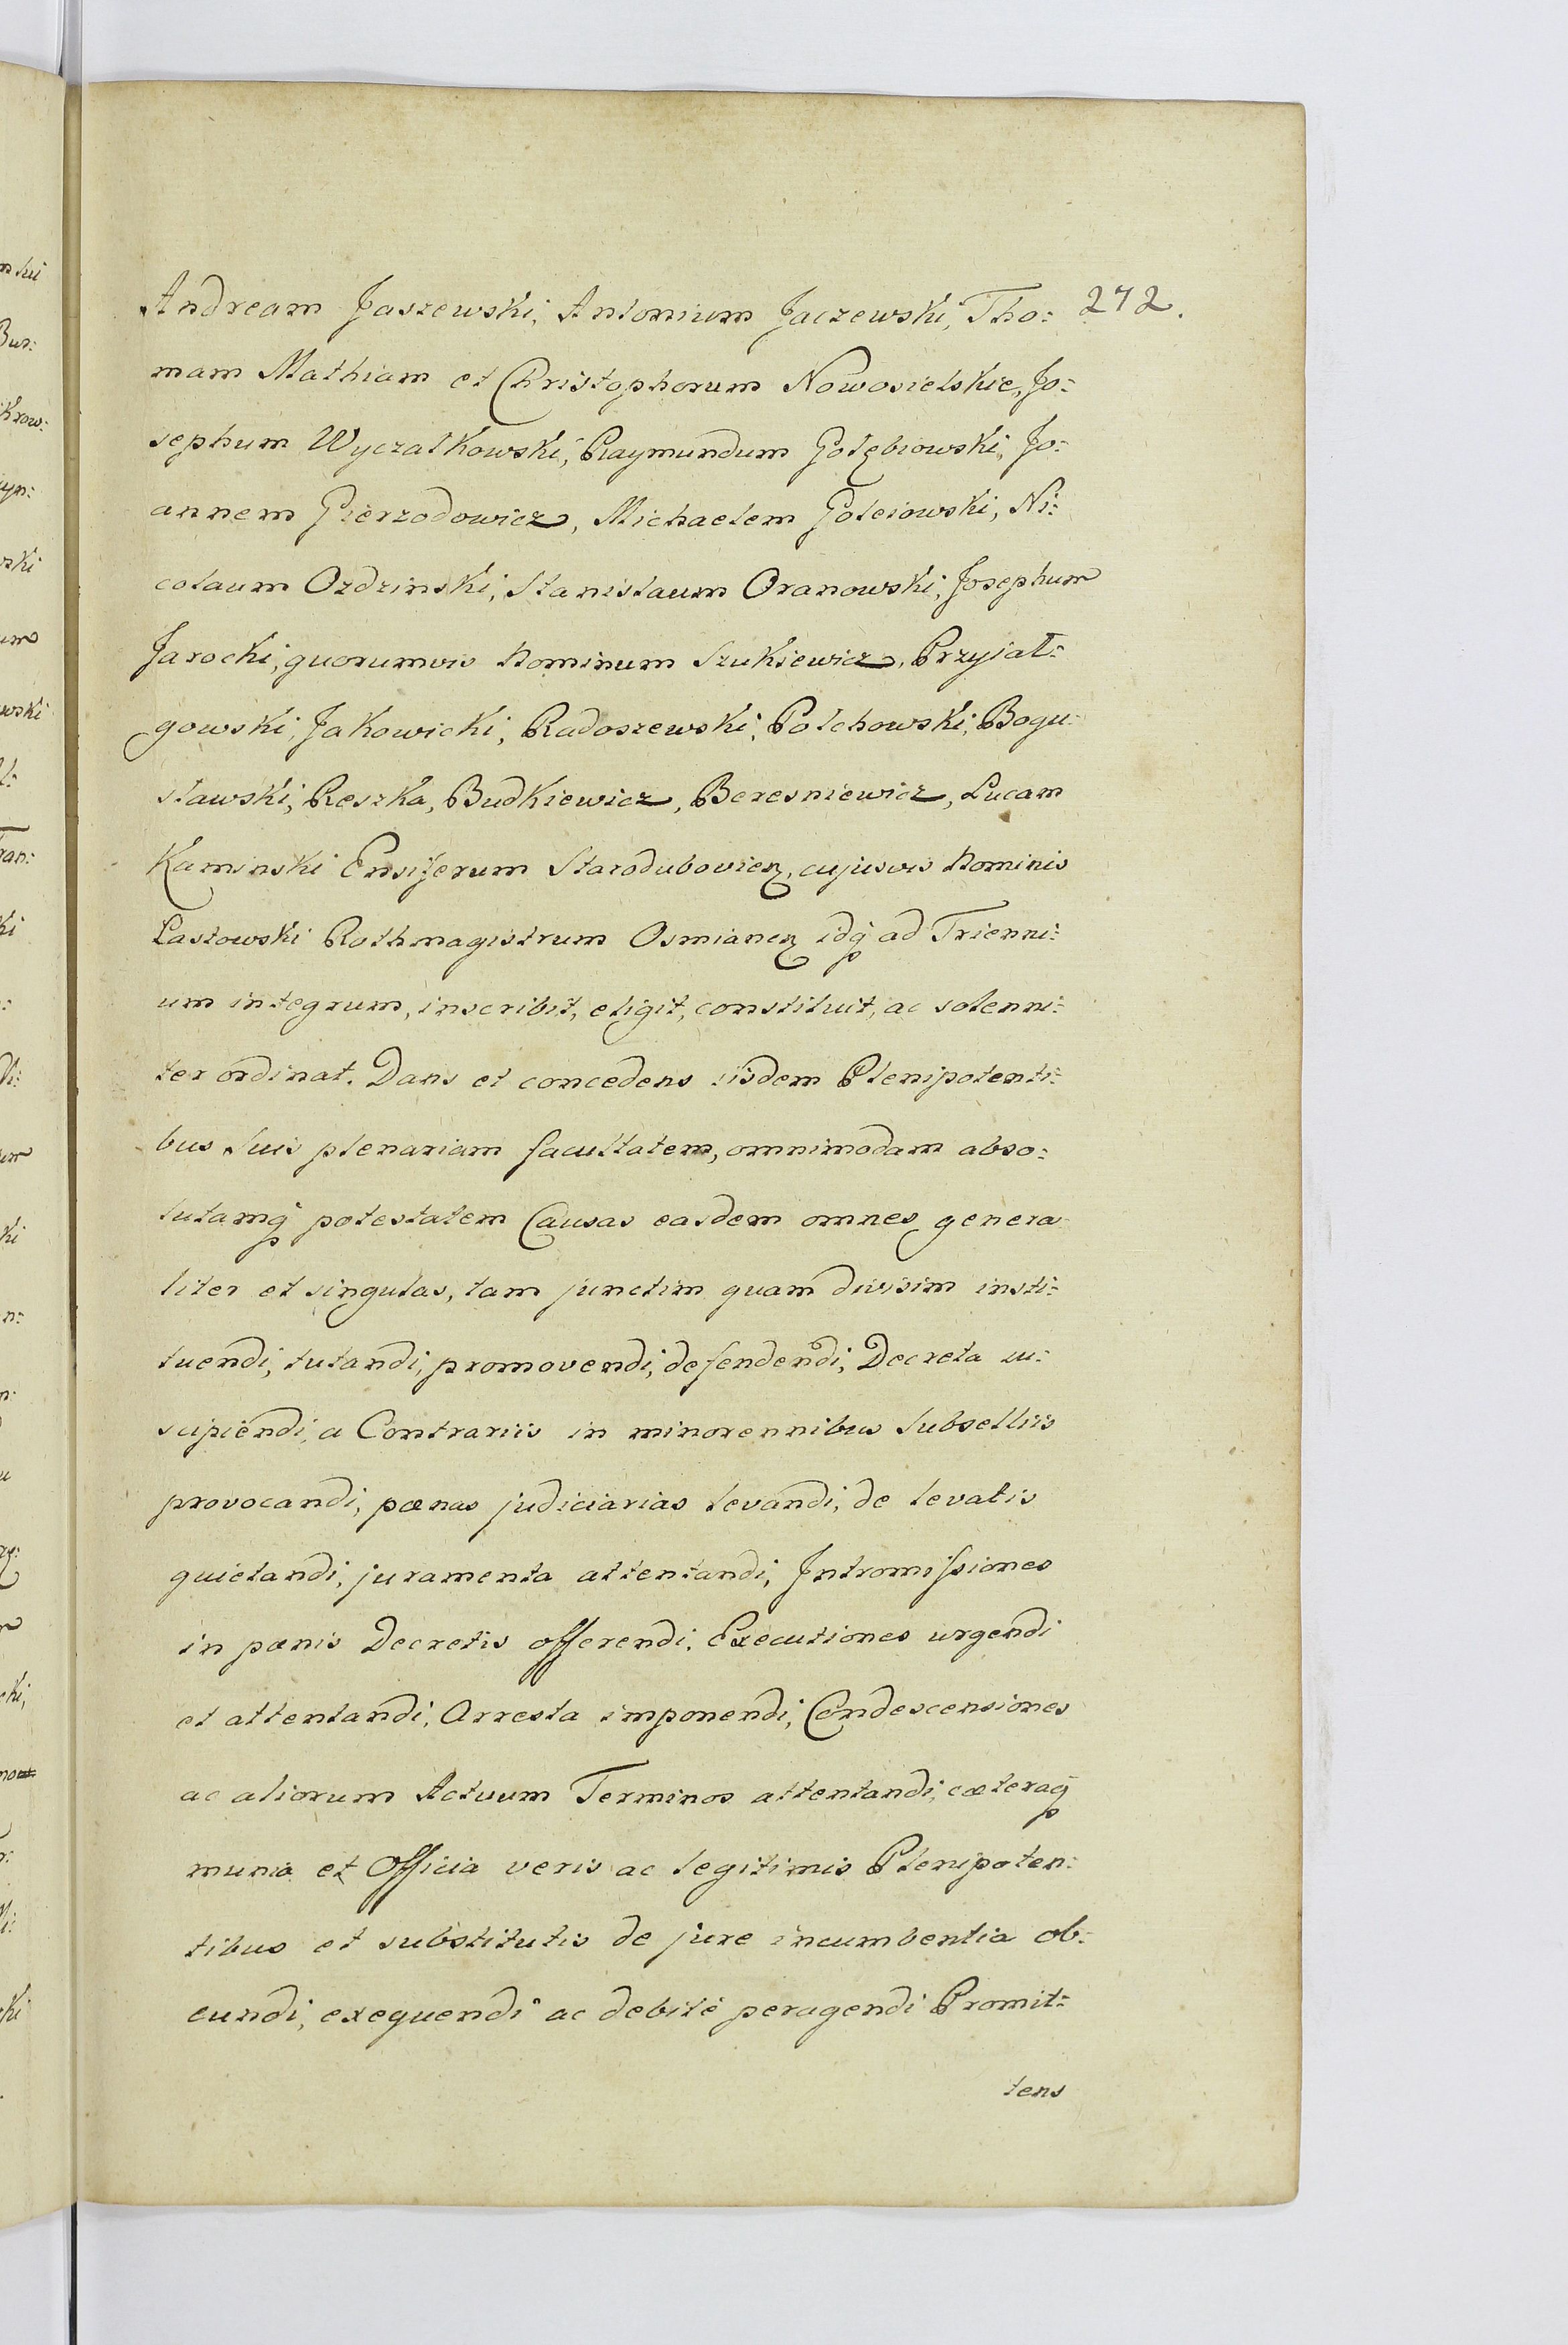 272.
Andream Jaszewski, Antonium Jaczewski, Tho:
mam Mathiam et Christophorum Nowosielskie, Jo:
sephum Wyczałkowski, Raymundum Gołębiowski, Jo:
annem Gierzodowicz, Michaelem Goleiowski, Ni:
colaum Ozdzinski, Stanislaum Oranowski, Josephum
Jarocki, quorumvis Nominum Szukiewicz, Przyiał:
gowski, Jakowicki, Radoszewski, Polchowski, Bogu:
sławski, Reszka, Budkiewicz, Beresniewicz, Lucam
Kaminski Ensiferum Starodubovien, cujusvis Nominis
Łastowski Rothmagistrum Osmianen idq ad Trienni:
um integrum, inscribit, eligit, constituit, ac solenni:
ter ordinat. Dans et concedens iisdem Plenipotenti:
bus suis plenariam facultatem, omnimodam abso:
lutamq potestatem Causas easdem omnes genera
liter et singulas, tam junctim quam divisim insti:
tuendi, tutandi, promovendi, defendendi, Decreta su:
scipiendi, a Contrariis in minorennibus Subselliis
provocandi, pœnas judiciarias levandi, de levatis
quietandi, juramenta attentandi, Intromissiones
in pœnis Decretis offerendi, Executiones urgendi
et attentandi, Arresta imponendi, Condescensiones
ac aliorum Actuum Terminos attentandi, cæteraq
munia et Officia veris ac legitimis Plenipoten:
tibus et substitutis de jure incumbentia ob:
eundi, exequendi ac debitè peragendi Promit:
tens